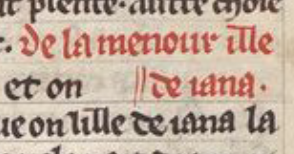 t plente. autre choie
. De la menour ille
et on // de iana.
ue on lille de iana la